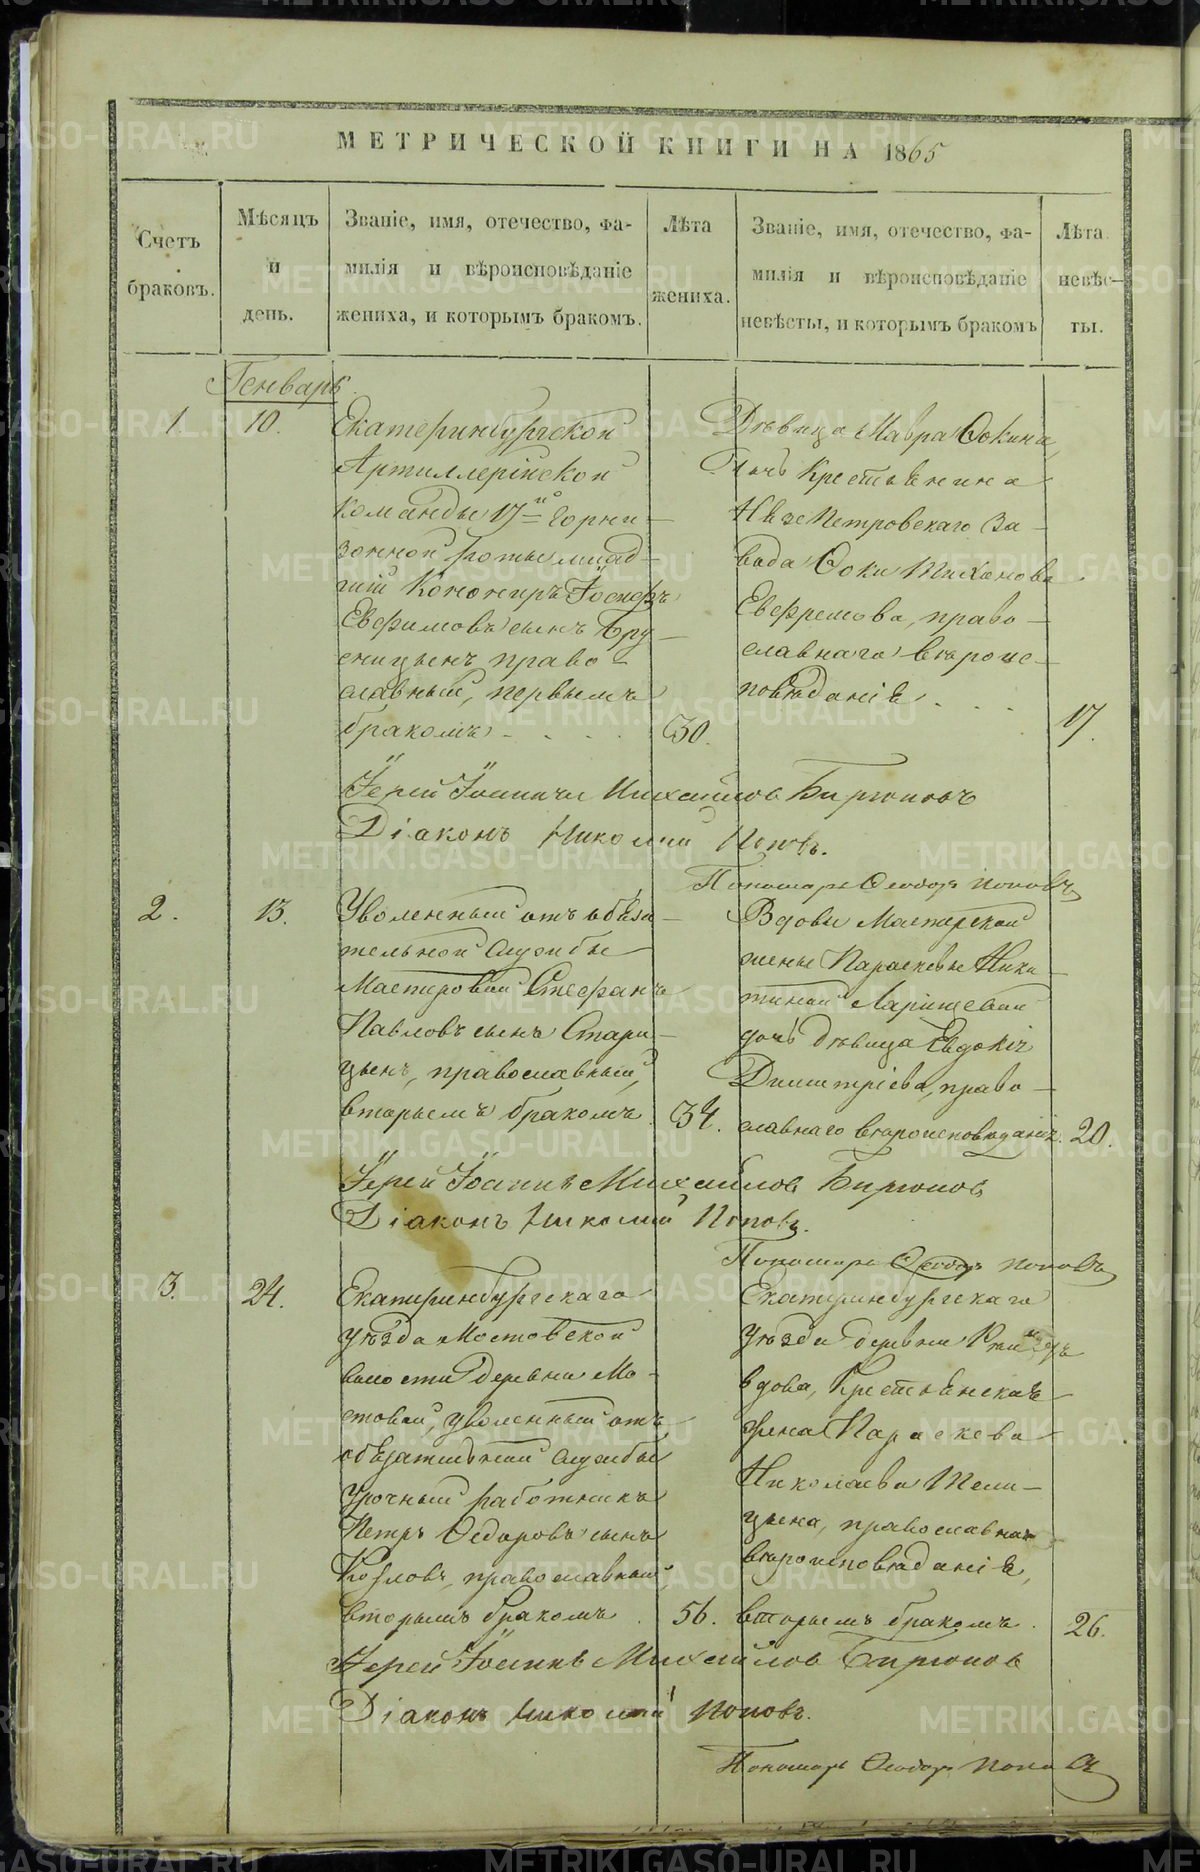 МЕТРИЧЕСКОЙ КНИГИ НА 1865
Счетъ браковъ.
Мѣсяцъ и день.
Званіе, имя, отечество, фа-
милія и вѣроисповѣданіе
жениха, и которымъ бракомъ.
Лѣта жениха.
Званіе, имя, отечество, фа-
милія и вѣроисповѣданіе
невѣсты, и которымъ бракомъ
Лѣта невѣс-
ты.
Генварь
1. 10.
Екатеринбургской
Артиллерійской
команды 17й горни-
зонной роты млад-
шій Канониръ Іосифъ
Евфимовъ сынъ Бру-
сницынъ право-
славный, первымъ
бракомъ 30.
Дѣвица Мавра Фокина,
дочь Крестьянина
Нязепетровскаго За-
вода Фоки Тихонова
Евфремова, право-
славнаго вѣроис-
повѣданія 17.
Іерей Іоаннъ Михайлов Бирюковъ
Діаконъ Николай Поповъ.
Пономарь Феодоръ Поповъ
2. 13.
Уволенный отъ обяза-
тельной службы
Мастеровой Стефанъ
Павловъ сынъ Стари-
цынъ, православный,
вторымъ бракомъ 34.
Вдовы Мастерской
жены Параскевы Ники-
тиной Ларищевой
дочь дѣвица Евдокія
Димитріева, право-
славнаго вѣроисповѣданія. 20.
Іерей Іоаннъ Михайлов Бирюков
Діаконъ Николай Поповъ.
Пономарь Феодоръ Поповъ
3. 24.
Екатеринбургскаго
уѣзда Мостовской
волости деревни Мо-
стовой, уволенный отъ
обязательной службы
урочный работникъ
Петръ Федоровъ сынъ
Козловъ, православный,
вторымъ бракомъ 56.
Екатеринбургскаго
уѣзда деревни
вдова, Крестьянская
жена Параскева
Николаева Тели-
цына, православнаго
вѣроисповѣданія,
вторымъ бракомъ 26.
Іерей Іоаннъ Михайлов Бирюков
Діаконъ Николай Поповъ.
Пономарь Феодоръ Поповъ
METRIKI.GASO-URAL.RU